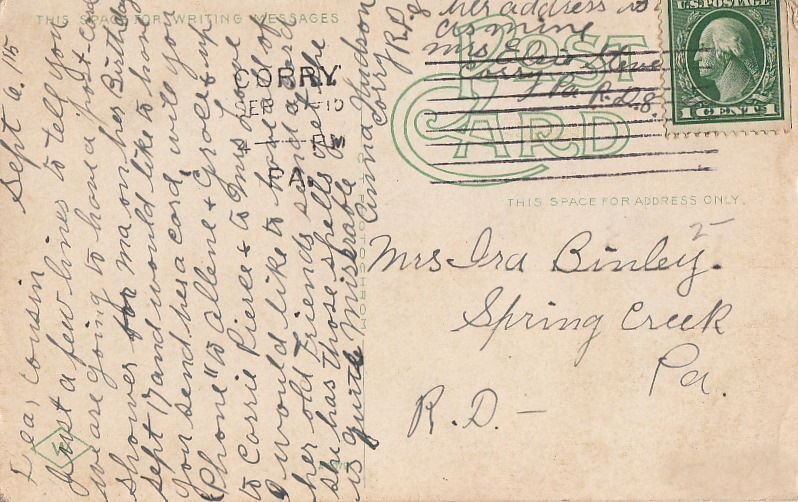 THIS SPACE FOR WRITING MESSAGES
Sept 6. 15
Dear cousin
Just a few lines to tell you
we are going to have a post-card
shower for ma on her Birthday
Sept 17 and would like to have
you send her a card will you
"Phone" to Allene & Grace & up
to Carrie Pierce & to Mrs
I would like to have all of
her old friends send a card
she has those spells yet she
is quite miserable
Anna Hudson
Corry R.D. 8
her address is
as mine
Mrs Elsie Steve
Corry
Pa. R.D. 8.
CORRY
SEP
PM
PA.
POST
CARD
U.S.POSTAGE
1 CENT 1
THIS SPACE FOR ADDRESS ONLY.
Mrs Ira Binley.
Spring Creek
Pa.
R.D. –